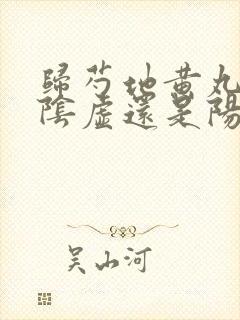 歸芍地黃丸
陰虛還是陽
吴山河